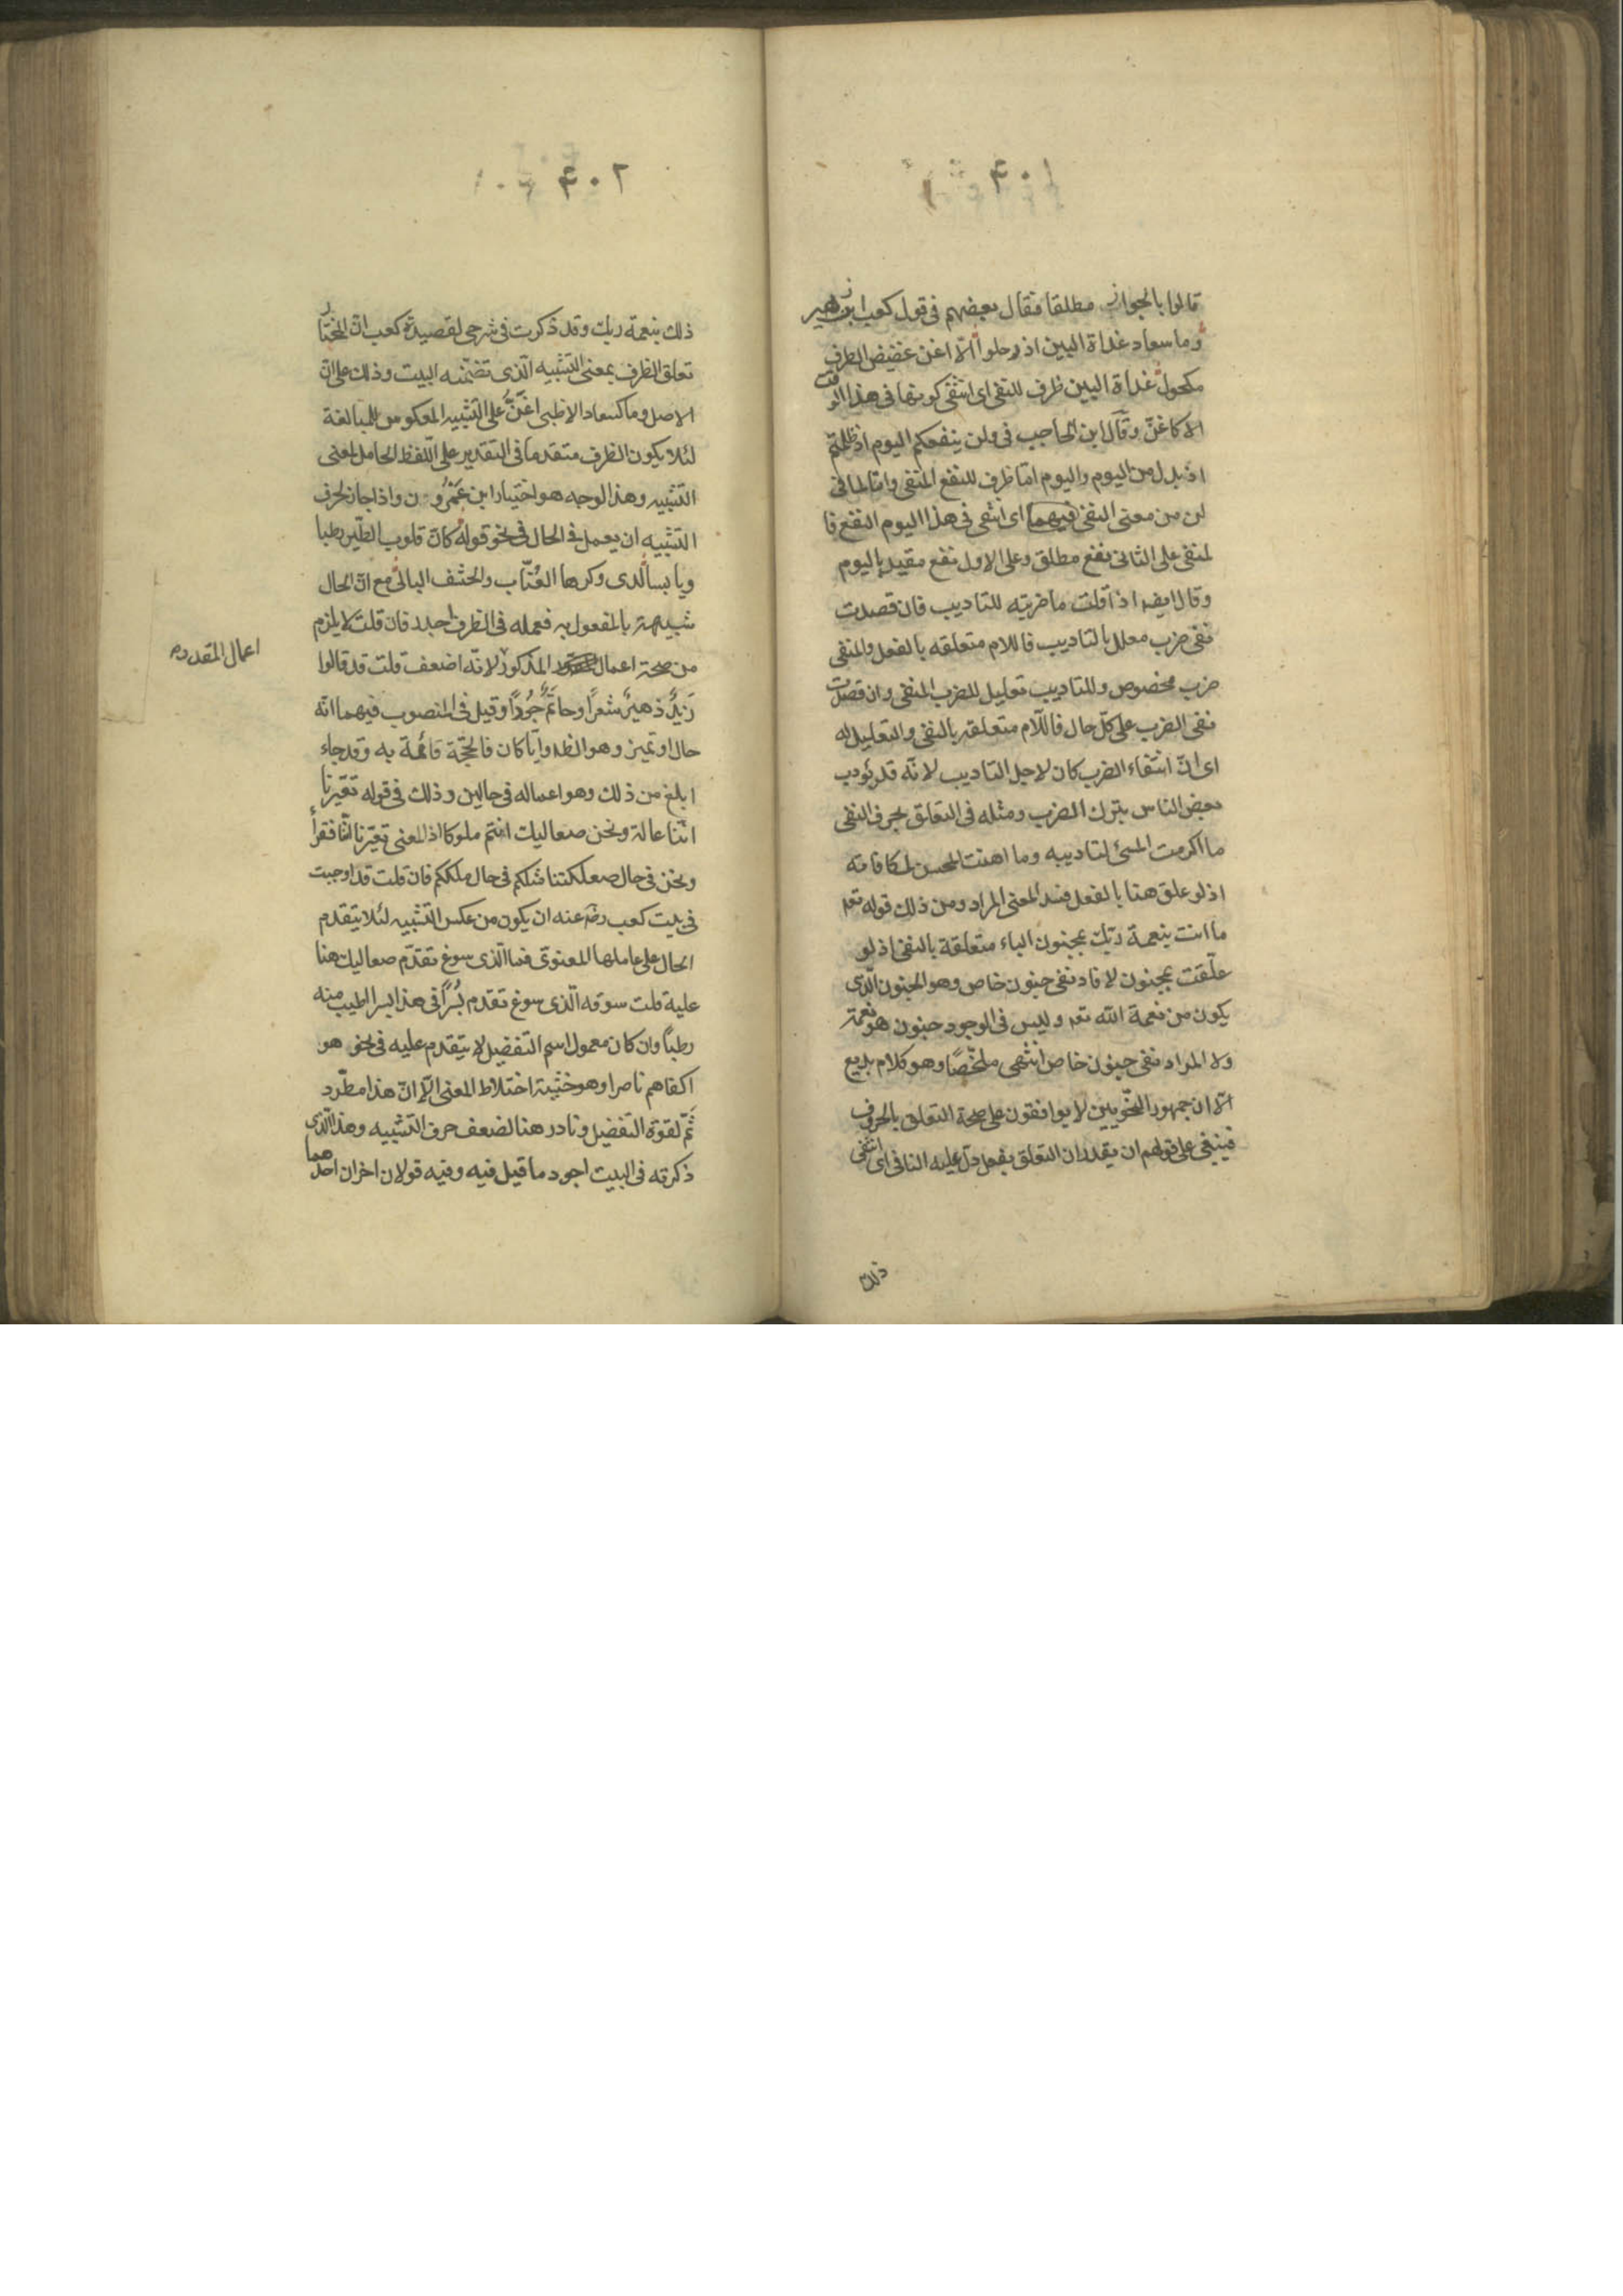 ٤٠١
قالوا بالجواز مطلقا فقال بعضهم فى قول كعب ابن زهير
وما سعاد غداة البين اذ رحلوا الا اغن غضيض الطرف
مكحول غداة البين ظرف للنفى اى انتفى كونها فى هذا الوقت
الا كاغنّ وقال ابن الحاجب فى ولن ينفعكم اليوم اذ ظلمتم
اذ بدل من اليوم واليوم امّا ظرف للنفع المنفى وامّا لما فى
لن من معنى النفى فيهما اى انتفى فى هذا اليوم النفع فا
لمنفى على الثانى نفع مطلق وعلى الاول نفع مقيد باليوم
وقال ايضا اذا قلت ما ضربته للتاديب فان قصدت
نفى ضرب معلل بالتاديب فاللام متعلقه بالفعل والمنفى
ضرب مخصوص وللتاديب تعليل للضرب المنفى وان قصدت
نفى الضرب على كلّ حال فاللّام متعلقه بالنفى والتعليل له
اى انّ انتفاء الضرب كان لاجل التاديب لانّه قد يؤدب
بعض الناس بترك الضرب ومثله فى التعلق بحرف النفى
ما اكرمت المسئ لتاديبه وما اهنت المحسن لمكافاته
اذ لو علق هنا بالفعل فسد المعنى المراد ومن ذلك قوله تعه
ما انت بنعمة ربّك بمجنون الباء متعلقة بالنفى اذ لو
علّقت بمجنون لافاد نفى جنون خاص وهو الجنون الّذى
يكون من نعمة الله تعه وليس فى الوجود جنون هو نعمة
ولا المراد نفى جنون خاص انتهى ملخّصًا وهو كلام بديع
الّا ان جمهور النحويين لا يوافقون على صحة التعلق بالحروف
فينبغى على قولهم ان يقدر ان التعلق بفعل دلّ عليه النافى اى انتفى
ذلك
٤٠٢
ذلك بنعمة ربك وقد ذكرت فى شرحى لقصيدة كعب انّ المختار
تعلق الظرف بمعنى التشبيه الّذى تضمّنه البيت وذلك على انّ
الاصل وما كسعاد الا ظبى اغنّ على التشبيه المعكوس للمبالغة
لئلا يكون الظرف متقدما فى التقدير على اللّفظ الحامل لمعنى
التشبيه وهذا الوجه هو اختيار ابن عمرون واذا جاز لحرف
التشبيه ان يعمل فى الحال فى نحو قوله كانّ قلوب الطّير رطبا
ويابسا لدى وكرها العُنّاب والحشف البالى مع انّ الحال
شبيهة بالمفعول به فعمله فى الظرف اجدر فان قلت لا يلزم
من صحة اعمال المذكور لانّه اضعف قلت قد قالوا
اعمال المقدر صح
زيدٌ زهيرٌ شعرًا وحاتمٌ جُودًا وقيل فى المنصوب فيهما انّه
حال او تميز وهو الظه وايّا كان فالحجّة قائمة به وقد جاء
ابلغ من ذلك وهو اعماله فى حالين وذلك فى قوله تعيّرنا
انّنا عالة ونحن صعاليك انتم ملوكا اذ المعنى تعيّرنا انّا فقرأ
ونحن فى حال صعلكتنا مثلكم فى حال ملككم فان قلت قد اوجبت
فى بيت كعب رضه عنه ان يكون من عكس التشبيه لئلا يتقدم
الحال على عاملها المعنوىّ فما الّذى سوغ تقدّم صعاليك هنا
علية قلت سوقه الّذى سوغ تقدم بُسرًا فى هذا بسرا اطيب منه
رطبًا وان كان معمول اسم التفضيل لا يتقدم عليه فى نحو هو
اكفاهم ناصرا وهو خشية اختلاط المعنى الّا انّ هذا مطّرد
ثَمّ لقوة التفضيل ونادر هنا لضعف حرف التشبيه وهذا الّذى
ذكرته فى البيت اجود ما قيل فيه وفيه قولان اخران احدهما